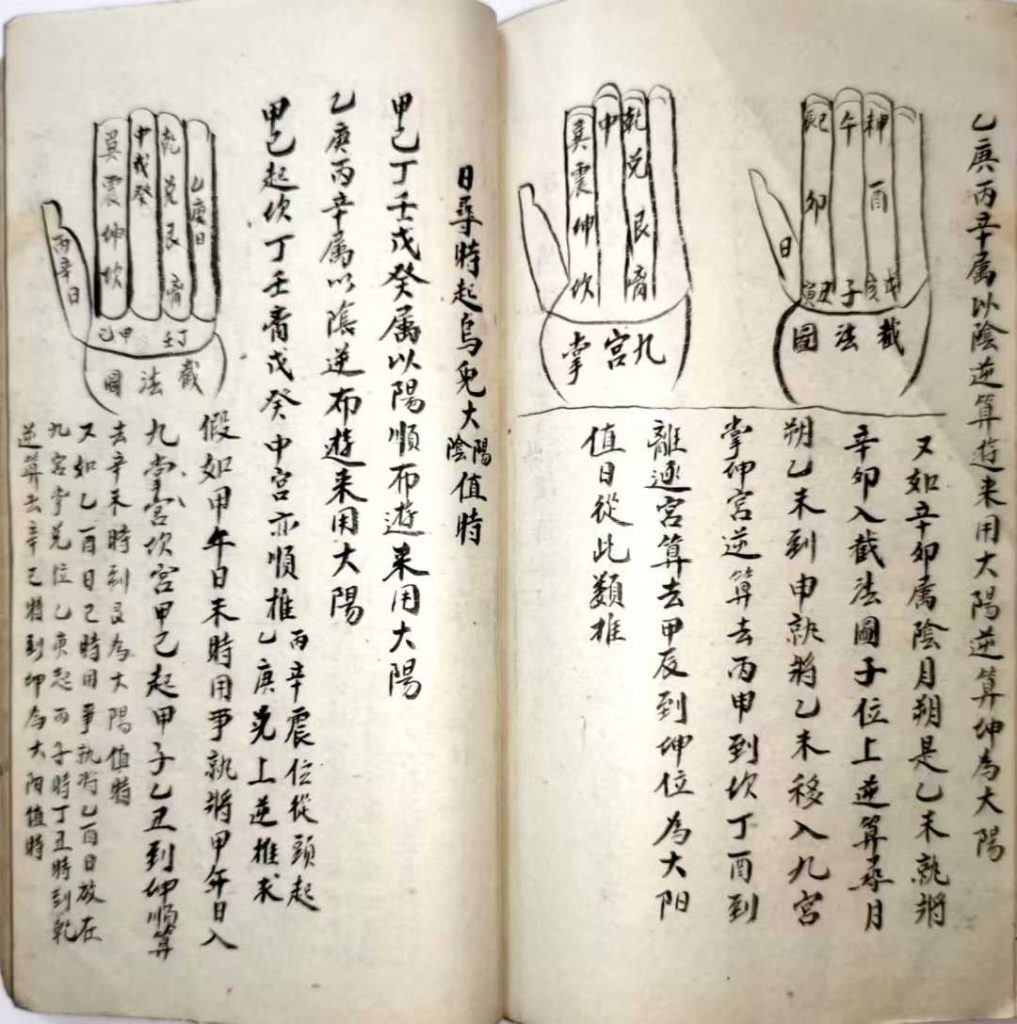 乙庚丙辛属以陰逆算遊来用大陽逆算坤為大陽
辰巳
午
申
卯
酉
日
寅丑
子
戌亥
截法圖
巽震坤坎
中
乾兑艮离
九宮掌
又如辛卯属陰月朔是乙未就將
辛卯入截法圖子位上逆算尋月
朔乙未到申就將乙未移入九宮
掌坤宮逆算去丙申到坎丁酉到
離逐宮算去甲辰到坤位為大阳
值日從此類推
日尋時起烏兔大陽陰值時
甲己丁壬戊癸属以陽順布遊来用大陽
乙庚丙辛属以陰逆布遊来用大陽
甲己起坎丁壬离戊癸中宮亦順推丙辛震位從頭起
乙庚兑上逆推求
巽震坤坎
中戊癸
乾兑艮离
乙庚日
丙辛日
甲己
丁壬
截法圖
假如甲午日未時用事就將甲午日入
九掌宮坎宮甲己起甲子乙丑到坤順算
去辛未時到艮為大陽值時
又如乙酉日巳時用事就将乙酉日放在
九宮掌兑位乙庚起丙子時丁丑時到乾
逆算去辛巳時到坤為大阳值時